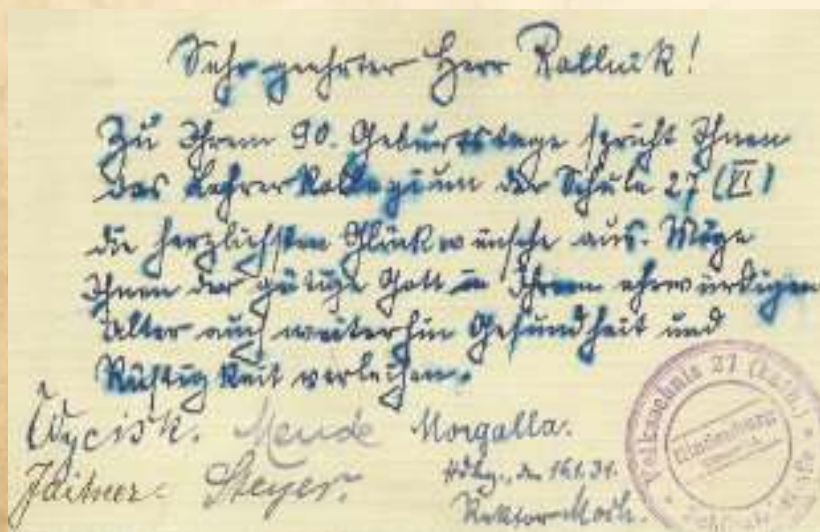 Sehr geehrter Herr Rallnik!
Zu Ihrem 90. Geburtstage spricht Ihnen
das Lehrerkollegium der Schule 27 (VI)
die herzlichsten Glückwünsche aus. Möge
Ihnen der gütige Gott in Ihrem ehrwürdigen
Alter auch weiterhin Gesundheit und
Rüstigkeit verleihen.
Wycisk. Mende Morgalla.
Jaitner. Steyer.
Hdbg., den
Rektor
Volksschule 27 (kath.)
Hindenburg